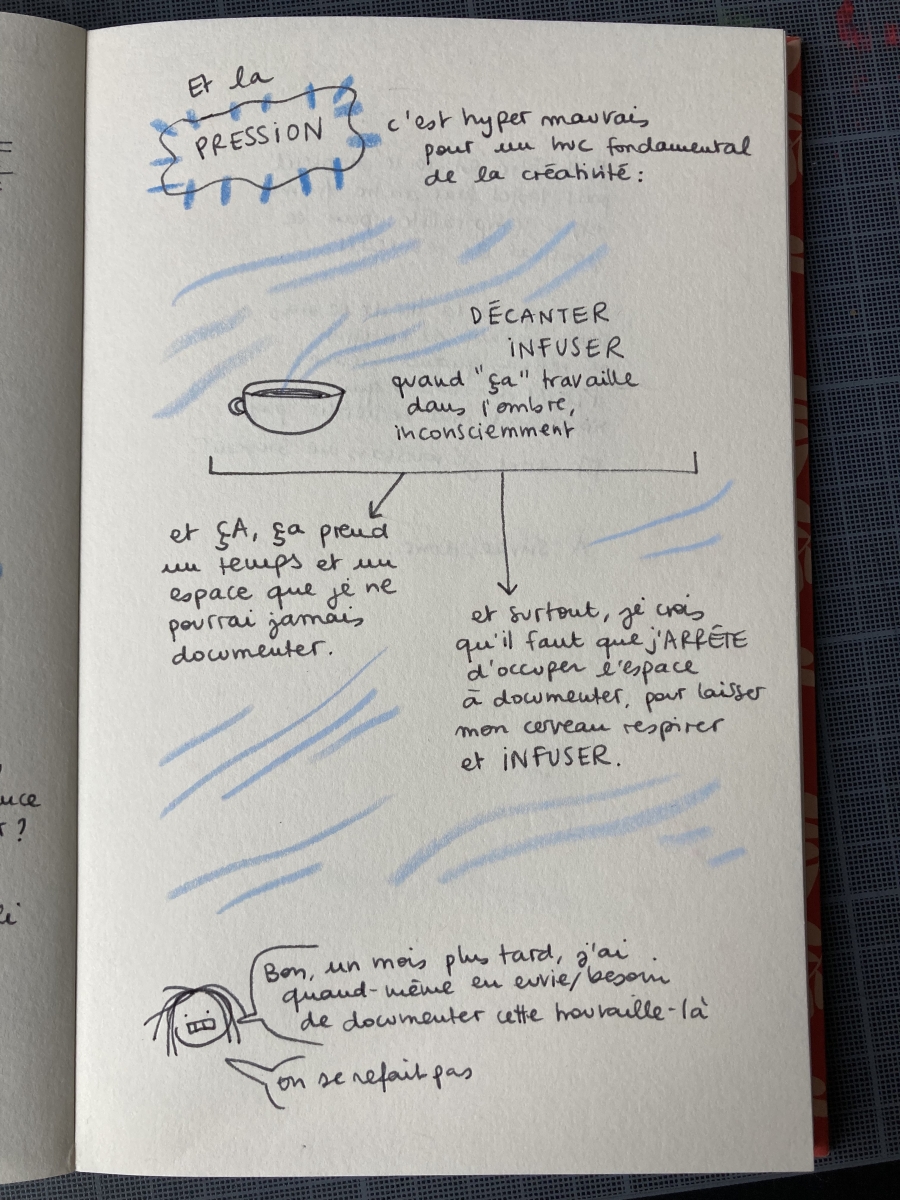 Et la
PRESSION
c'est hyper mauvais
pour un truc fondamental
de la créativité :
DÉCANTER
iNFUSER
quand "ça" travaille
dans l'ombre,
inconsciemment
et ÇA, ça prend
un temps et un
espace que je ne
pourrai jamais
documenter.
et surtout, je crois
qu'il faut que j'ARRÊTE
d'occuper l'espace
à documenter, pour laisser
mon cerveau respirer
et iNFUSER.
Bon, un mois plus tard, j'ai
quand-même eu envie/besoin
de documenter cette trouvaille-là
on se refait pas
uce
?